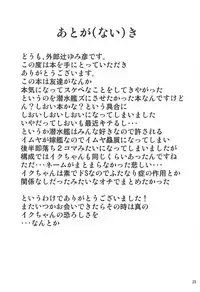 あとが(ない)き
どうも、外郎辻ゆみ彦です。
この度は本を手にとっていただき
ありがとうございます。
この本は友達がなんか
本気になってスケベなことをしてきやがった
というのを潜水艦ズにさせたかった本なんですけど
なんか？しおいかわいい？という具合に
しおいしおいになってしまいました
いやだってしおいも最近キテるし…
という潜水艦はみんな好きなので許される
イムヤが嫁艦なのでイムヤ贔屓になってしまい
後半部落ち２コマみたいになってしまいましたが
構成ではイクちゃんも同じくらいあったんですね
ただ…ネームがまとまらなかった悲しい…
イクちゃんは素でドSなのでふたなり症の作用とか
関係なしだったみたいなオチでまとめたかった
というわけでありがとうございました！
またいつかお会いできたらその時は真の
イクちゃんの恐ろしさを
…なんとか